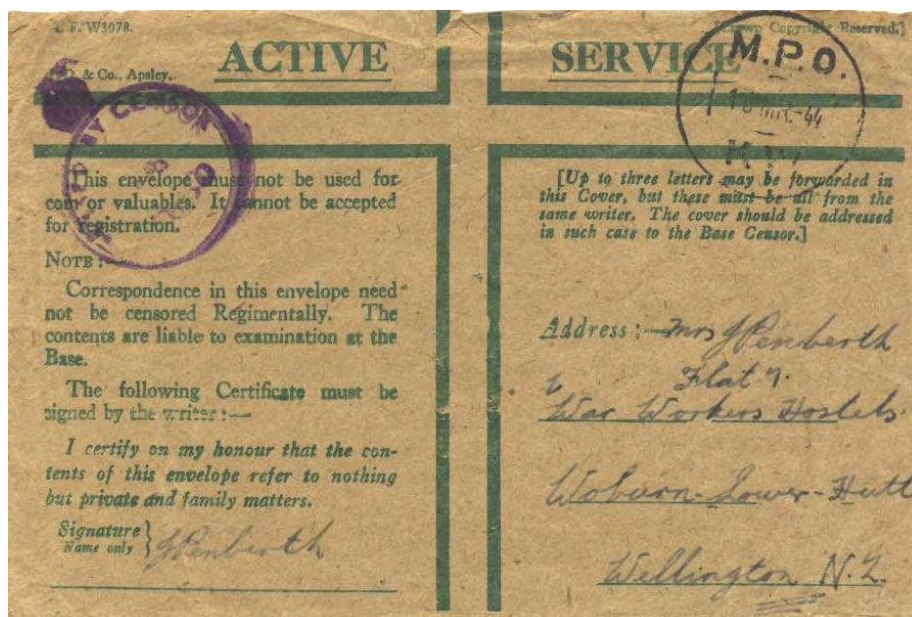 F. W3078.
[Crown Copyright Reserved.]
ACTIVE SERVICE
& Co., Apsley.
BY CENSOR
M.P.O.
-44
K.W.
This envelope must not be used for
coin or valuables. It cannot be accepted
for registration.
NOTE :—
Correspondence in this envelope need
not be censored Regimentally. The
contents are liable to examination at the
Base.
The following Certificate must be
signed by the writer :—
I certify on my honour that the con-
tents of this envelope refer to nothing
but private and family matters.
Signature }
Name only
J Penberth
[Up to three letters may be forwarded in
this Cover, but these must be all from the
same writer. The cover should be addressed
in such case to the Base Censor.]
Address :— Mrs J Penberth
Flat 7.
War Workers Hostels.
Woburn - Lower - Hutt
Wellington N.Z.